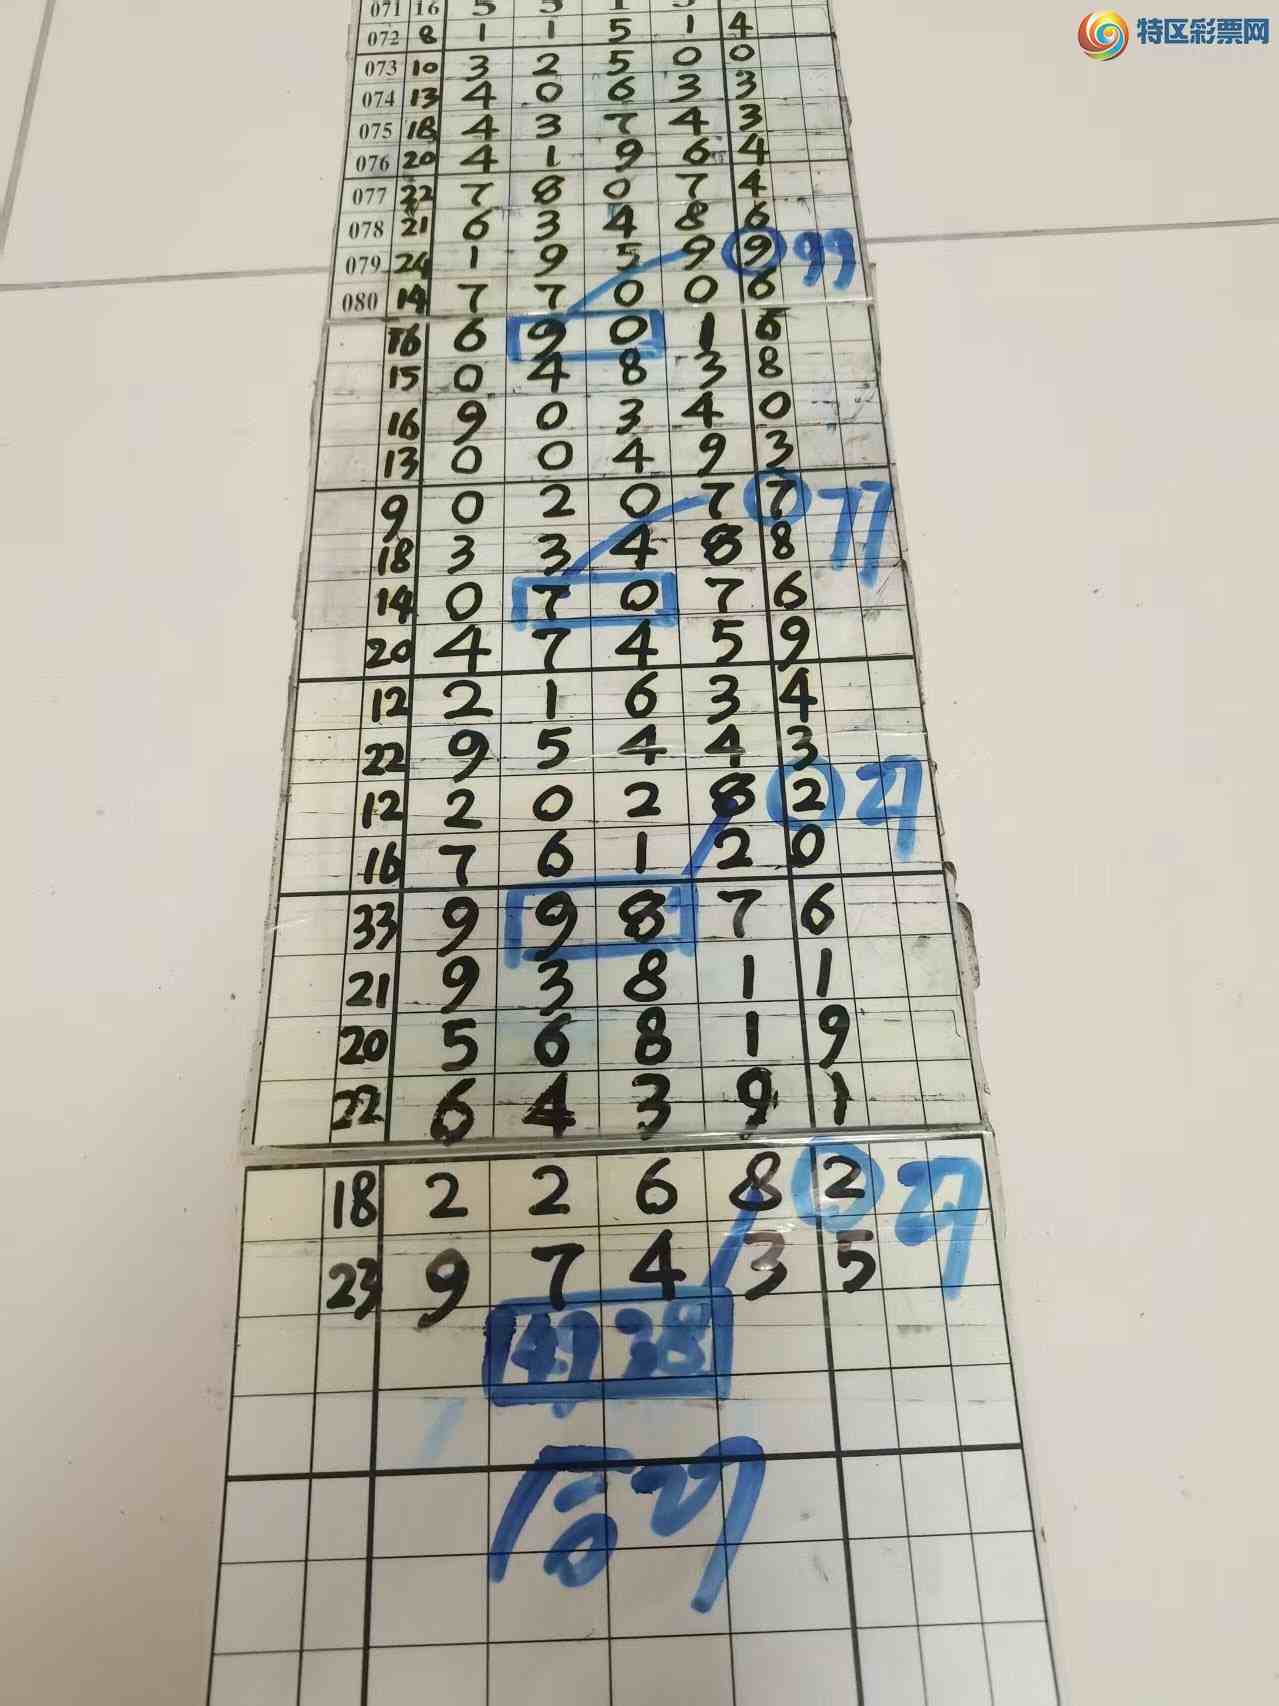 特区彩票网
071 16 5 3 1 3
072 8 1 1 5 1 4
073 10 3 2 5 0 0
074 13 4 0 6 3 3
075 18 4 3 7 4 3
076 20 4 1 9 6 4
077 22 7 8 0 7 4
078 21 6 3 4 8 6
079 24 1 9 5 9 9 99
080 14 7 7 0 0 6
16 6 9 0 1 6
15 0 4 8 3 8
16 9 0 3 4 0
13 0 0 4 9 3
9 0 2 0 7 7 77
18 3 3 4 8 8
14 0 7 0 7 6
20 4 7 4 5 9
12 2 1 6 3 4
22 9 5 4 4 3
12 2 0 2 8 2 27
16 7 6 1 2 0
33 9 9 8 7 6
21 9 3 8 1 1
20 5 6 8 1 9
22 6 4 3 9 1
18 2 2 6 8 2 27
23 9 7 4 3 5
149 38